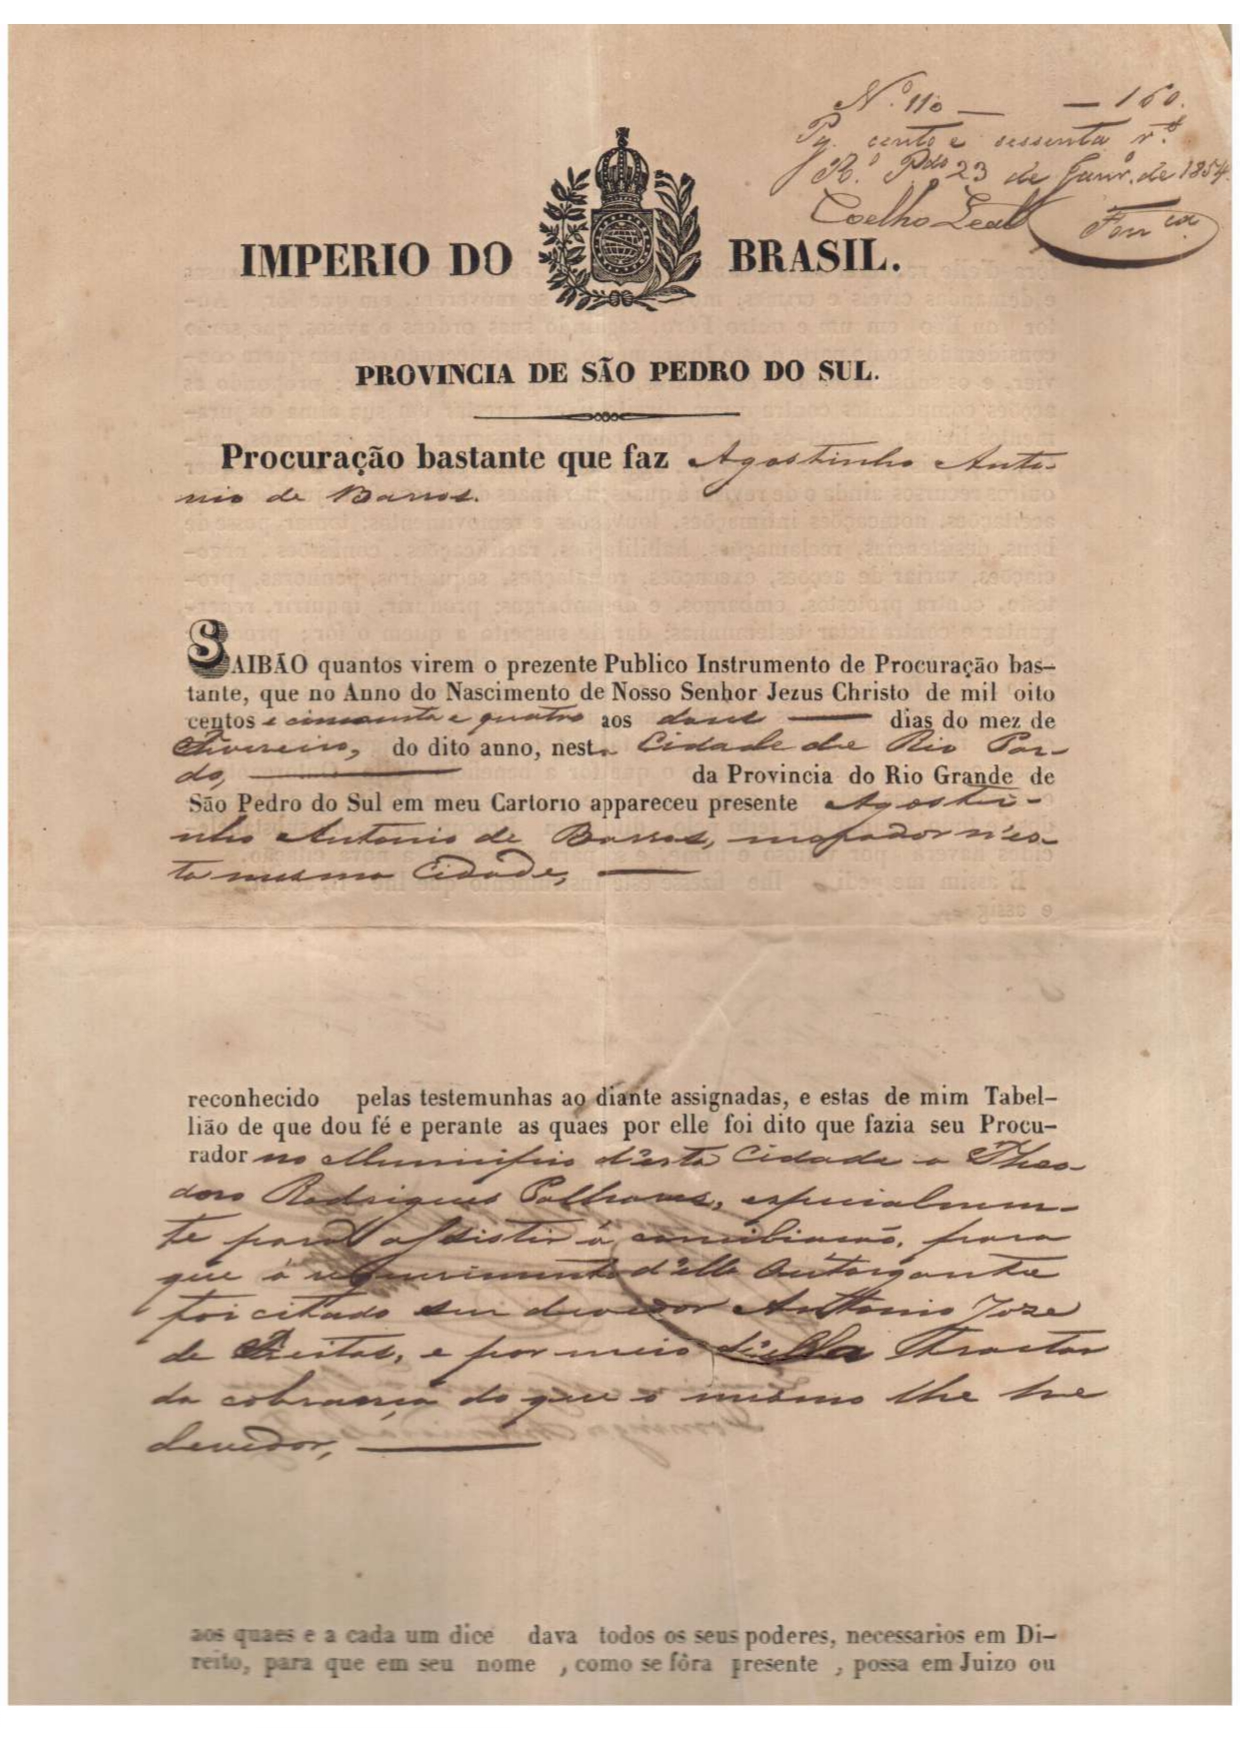 Nº 110 — — 160.
Pg. cento e sessenta rˢ
Rº Pdo 23 de Janrº de 1854.
Coelho Leal Fonca
IMPERIO DO BRASIL.
PROVINCIA DE SÃO PEDRO DO SUL.
Procuração bastante que faz Agostinho Anto-
nio de Barros.
SAIBÃO quantos virem o prezente Publico Instrumento de Procuração bas-
tante, que no Anno do Nascimento de Nosso Senhor Jezus Christo de mil oito
centos e cincoenta e quatro aos doze — dias do mez de
Fivereiro, do dito anno, nesta Cidade de Rio Par-
do, — da Provincia do Rio Grande de
São Pedro do Sul em meu Cartorio appareceu presente Agosti-
nho Antonio de Barros, morador n'es-
ta mesma Cidade, —
reconhecido pelas testemunhas ao diante assignadas, e estas de mim Tabel-
lião de que dou fé e perante as quaes por elle foi dito que fazia seu Procu-
rador no Municipio d'esta Cidade a Theo-
doro Rodrigues Palhares, especialmen-
te para assistir á conciliacaõ, para
que á requerimento d'elle Outorgante
foi citado seu devedor Antonio Joze
de Freitas, e por meio d'ella Tractar
da cobrança do que o mesmo lhe he
devedor, —
aos quaes e a cada um dice dava todos os seus poderes, necessarios em Di-
reito, para que em seu nome , como se fôra presente , possa em Juizo ou